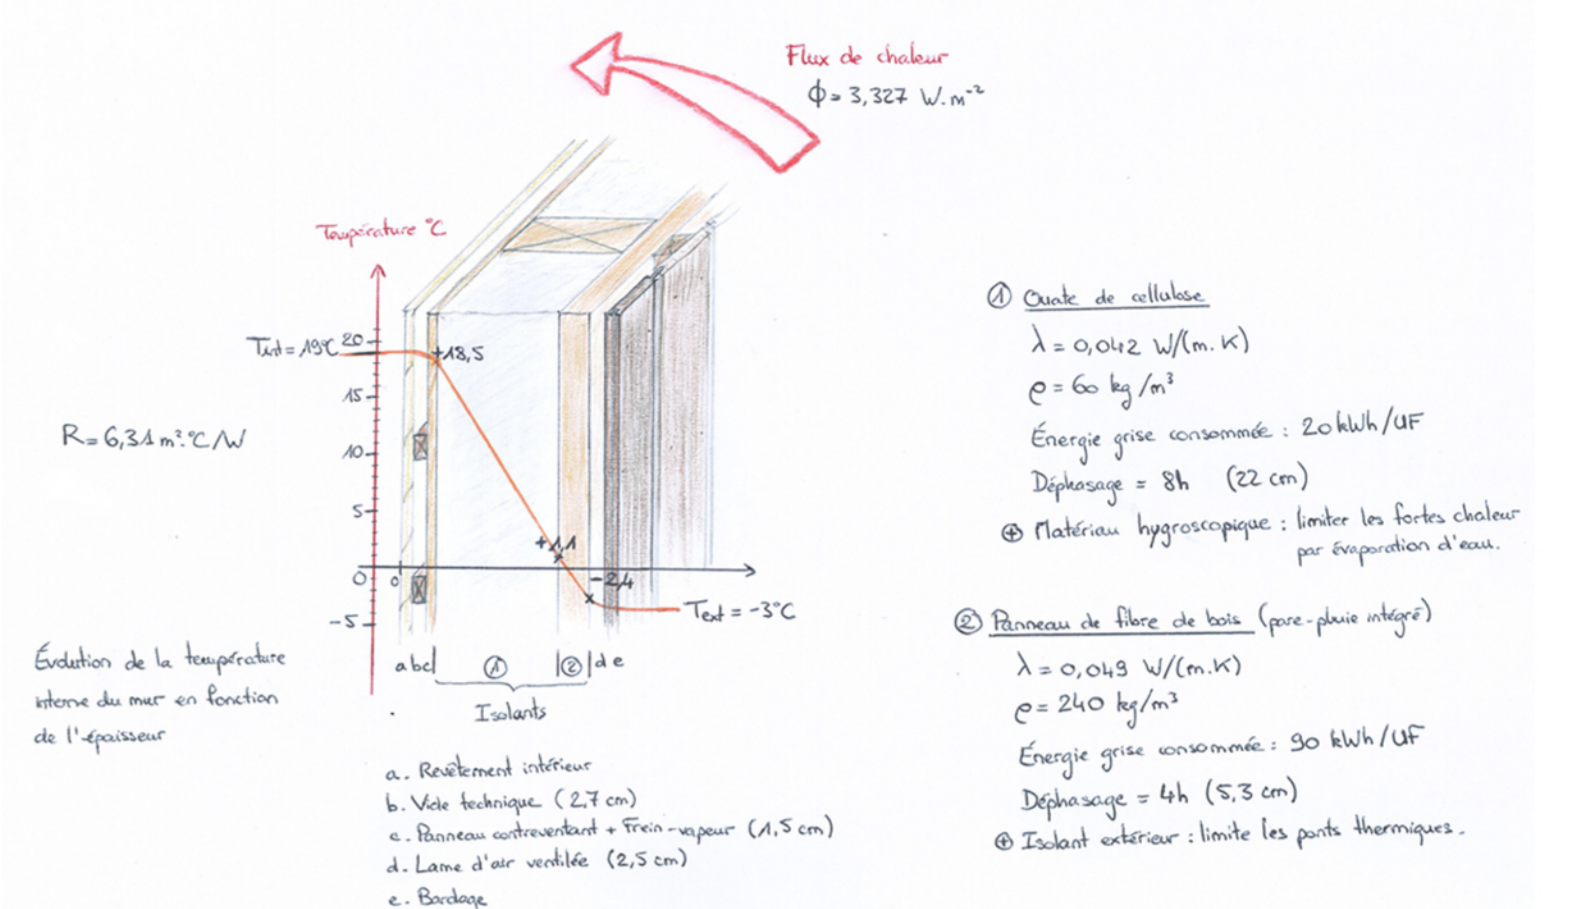 Flux de chaleur
ϕ = 3,327 W.m⁻²
Température °C
Tint = 19°C
20
+18,5
15
R = 6,31 m².°C/W
10
5
+1,1
0
0
-2,4
-5
Text = -3°C
a b c
①
②
d e
Isolants
Évolution de la température
interne du mur en fonction
de l'épaisseur
a. Revêtement intérieur
b. Vide technique (2,7 cm)
c. Panneau contreventant + Frein-vapeur (1,5 cm)
d. Lame d'air ventilée (2,5 cm)
e. Bardage
① Ouate de cellulose
λ = 0,042 W/(m.K)
ρ = 60 kg/m³
Énergie grise consommée : 20 kWh/UF
Déphasage = 8h (22 cm)
⊕ Matériau hygroscopique : limiter les fortes chaleur
par évaporation d'eau.
② Panneau de fibre de bois (pare-pluie intégré)
λ = 0,049 W/(m.K)
ρ = 240 kg/m³
Énergie grise consommée : 90 kWh/UF
Déphasage = 4h (5,3 cm)
⊕ Isolant extérieur : limite les ponts thermiques.